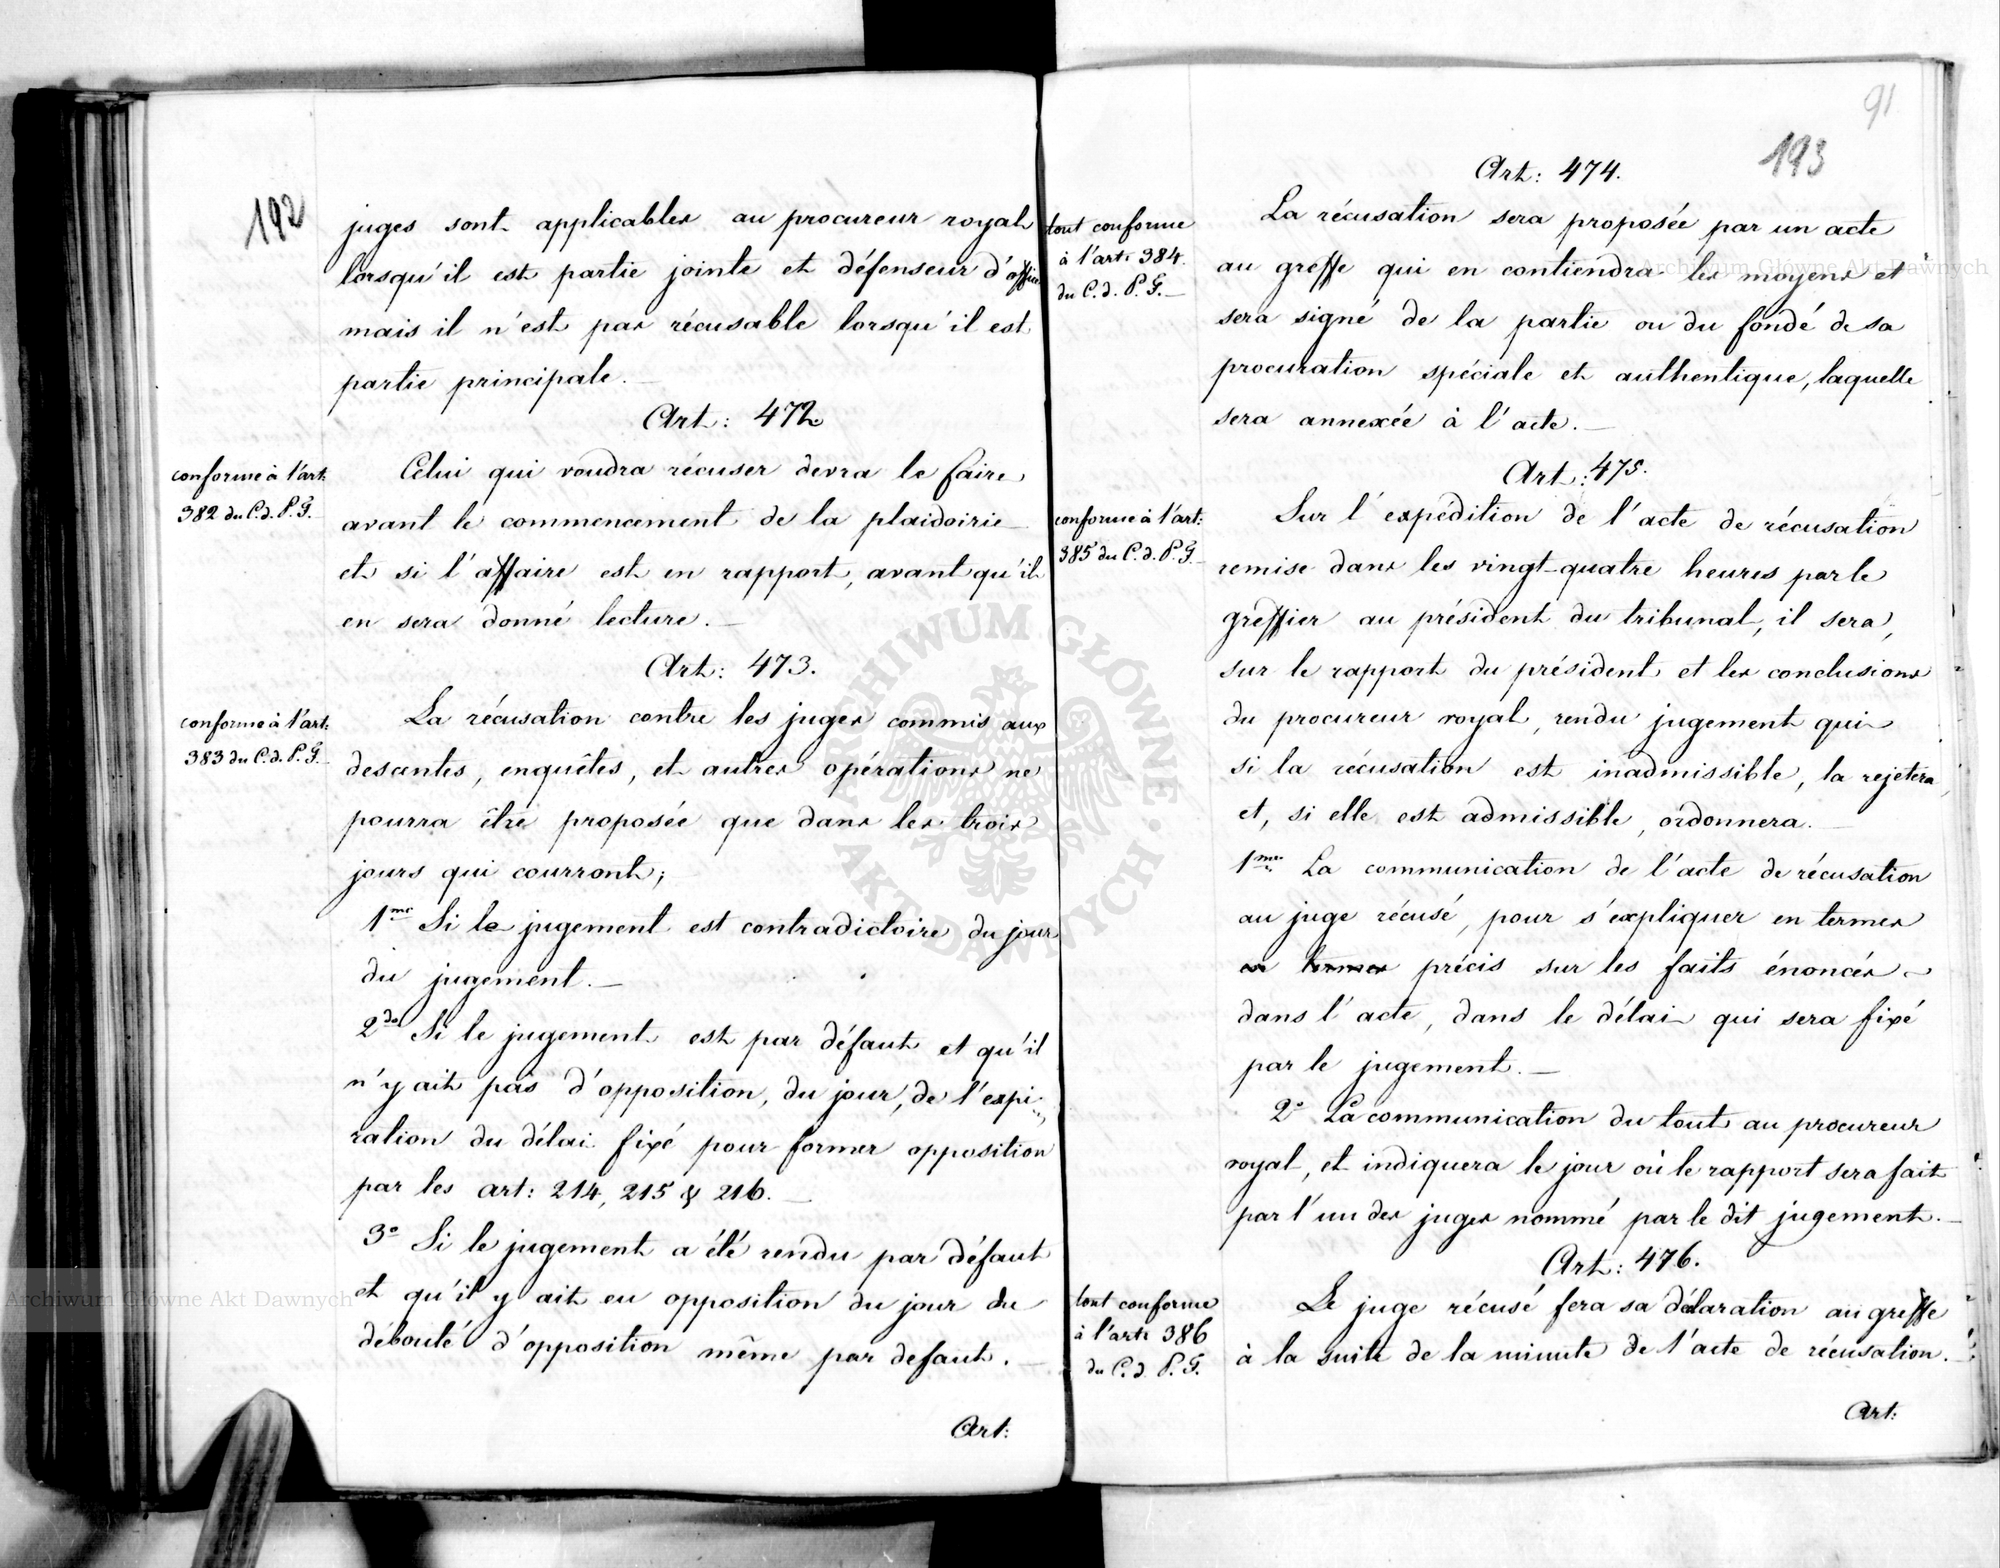 192
juges sont applicables au procureur royal
lorsqu'il est partie jointe et défenseur d'office
mais il n'est pas récusable lorsqu'il est
partie principale. —
Art: 472.
conforme à l'art:
382 du C. d. P. F. —
Celui qui voudra récuser devra le faire
avant le commencement de la plaidoirie
et si l'affaire est en rapport, avant qu'il
en sera donné lecture. —
Art: 473.
conforme à l'art:
383 du C. d. P. F. —
La récusation contre les juges commis aux
descentes, enquêtes, et autres opérations ne
pourra être proposée que dans les trois
jours qui courront;
1mo Si le jugement est contradictoire du jour
du jugement. —
2do Si le jugement est par défaut et qu'il
n'y ait pas d'opposition, du jour, de l'expi-
ration du délai fixé pour former opposition
par les art: 214, 215 & 216. —
3o Si le jugement a été rendu par défaut
et qu'il y ait eu opposition du jour du
débouté d'opposition même par defaut. —
Art:
91
193
Art: 474.
tout conforme
à l'art: 384
du C. d. P. F. —
La récusation sera proposée par un acte
au greffe qui en contiendra les moyens et
sera signé de la partie ou du fondé de sa
procuration spéciale et authentique, laquelle
sera annexée à l'acte. —
Art: 475.
conforme à l'art:
385 du C. d. P. F. —
Sur l'expédition de l'acte de récusation
remise dans les vingt-quatre heures par le
greffier au président du tribunal, il sera,
sur le rapport du président et les conclusions
du procureur royal, rendu jugement qui
si la récusation est inadmissible, la rejetera,
et, si elle est admissible, ordonnera. —
1mo La communication de l'acte de récusation
au juge récusé, pour s'expliquer en termes
en termes précis sur les faits énoncés
dans l'acte, dans le délai qui sera fixé
par le jugement. —
2o La communication du tout au procureur
royal, et indiquera le jour où le rapport sera fait
par l'un des juges nommé par le dit jugement. —
Art: 476.
tout conforme
à l'art: 386
du C. d. P. F.
Le juge récusé fera sa déclaration au greffe
à la suite de la minute de l'acte de récusation. —
Art:
ARCHIWUM GŁÓWNE AKT DAWNYCH
Archiwum Główne Akt Dawnych
Archiwum Główne Akt Dawnych